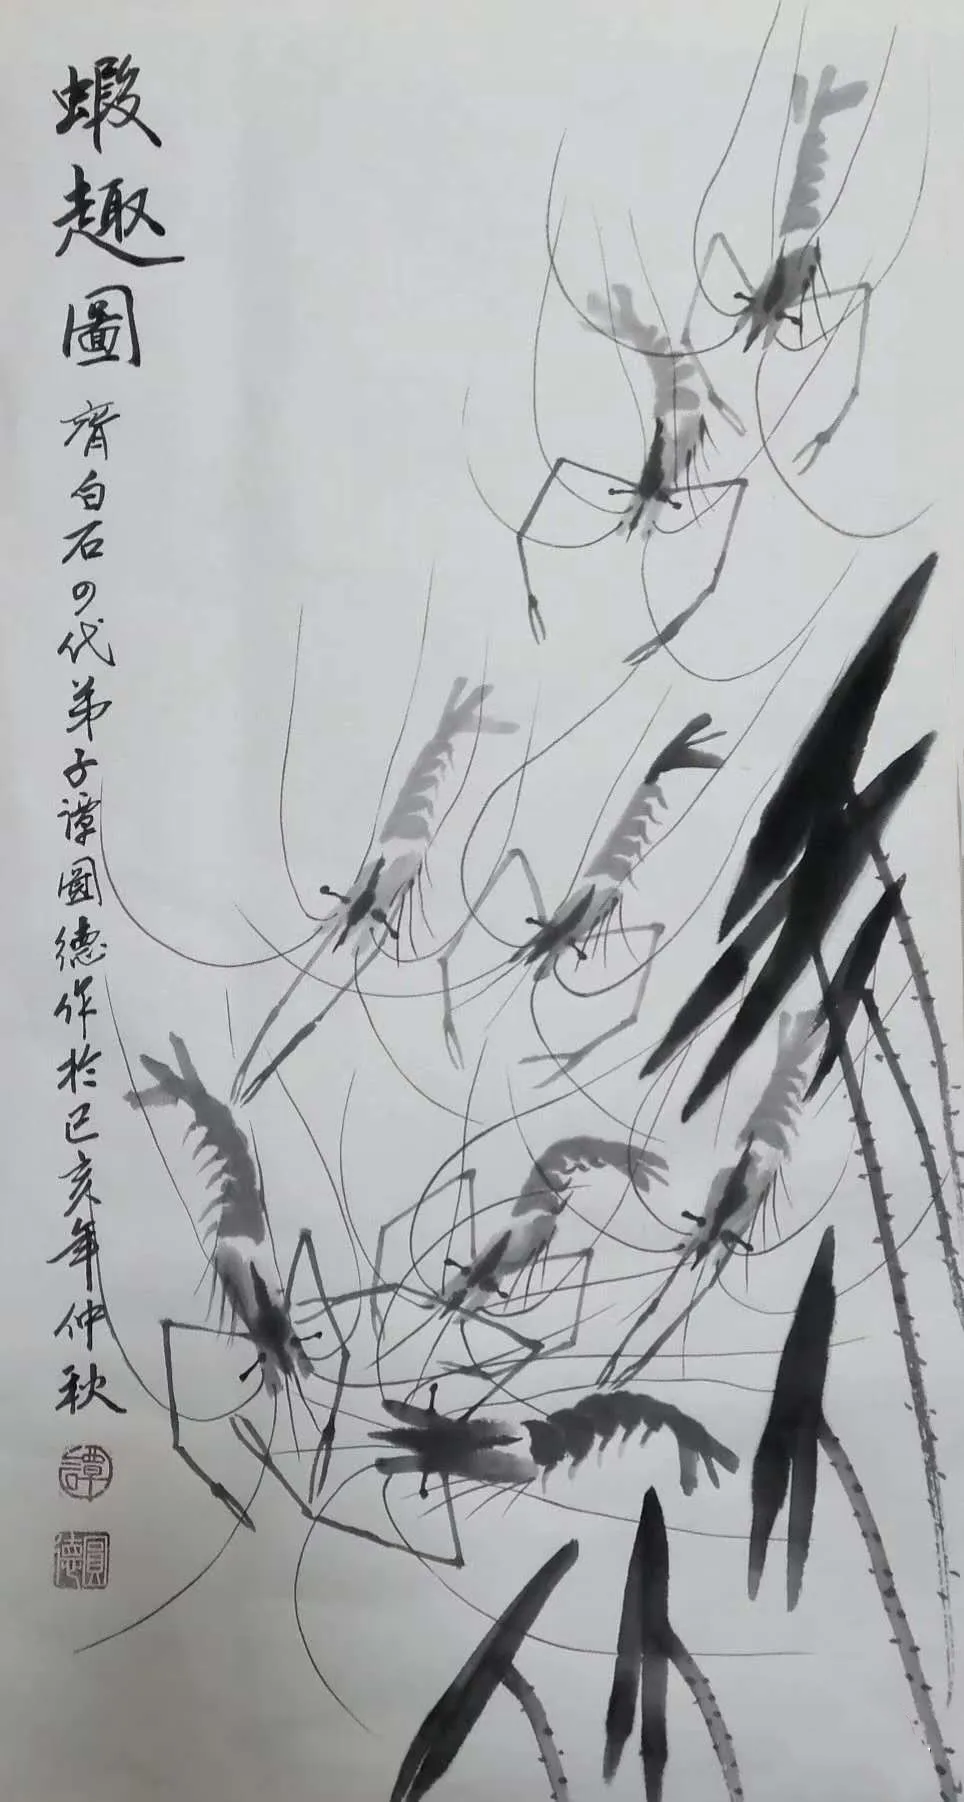 蝦趣圖 齊白石四代弟子譚圓德作於己亥年仲秋
譚
圓德